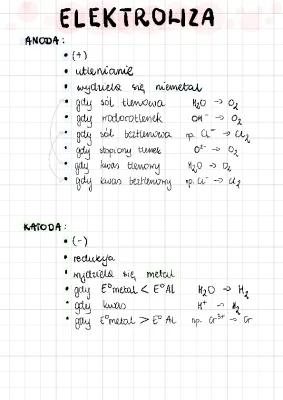 ELEKTROLIZA
ANODA:
• (+)
• utlenianie
• wydziela się niemetal
• gdy sól tlenowa H₂O → O₂
• gdy wodorotlenek OH⁻ → O₂
• gdy sól beztlenowa np. Cl⁻ → Cl₂
• gdy stopiony tlenek O²⁻ → O₂
• gdy kwas tlenowy H₂O → O₂
• gdy kwas beztlenowy np. Cl⁻ → Cl₂
KATODA:
• (-)
• redukcja
• wydziela się metal
• gdy E°metal < E°Al H₂O → H₂
• gdy kwas H⁺ → H₂
• gdy E°metal > E°Al np. Cr³⁺ → Cr